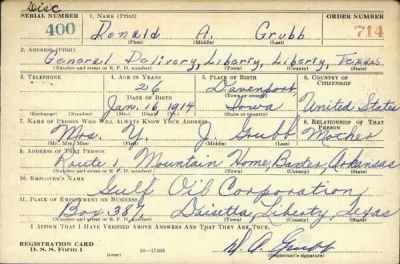 Disc
SERIAL NUMBER 1. NAME (Print) ORDER NUMBER
400 Donald A. Grubb 714
(First) (Middle) (Last)
2. ADDRESS (Print)
General Delivery, Liberty, Liberty, Texas.
(Number and street or R. F. D. number) (Town) (County) (State)
3. TELEPHONE 4. AGE IN YEARS 5. PLACE OF BIRTH 6. COUNTRY OF CITIZENSHIP
26 Davenport
DATE OF BIRTH (Town or county)
Jan. 16 1914 Iowa United States
(Exchange) (Number) (Mo.) (Day) (Yr.) (State or country)
7. NAME OF PERSON WHO WILL ALWAYS KNOW YOUR ADDRESS 8. RELATIONSHIP OF THAT PERSON
Mrs. Y. J. Grubb Mother
(Mr., Mrs., Miss) (First) (Middle) (Last)
9. ADDRESS OF THAT PERSON
Route 1 Mountain Home, Baxter, Arkansas
(Number and street or R. F. D. number) (Town) (County) (State)
10. EMPLOYER'S NAME
Gulf Oil Corporation
11. PLACE OF EMPLOYMENT OR BUSINESS
Box 387 Daisetta, Liberty, Texas
(Number and street or R. F. D. number) (Town) (County) (State)
I AFFIRM THAT I HAVE VERIFIED ABOVE ANSWERS AND THAT THEY ARE TRUE.
REGISTRATION CARD
D. S. S. Form 1 D. A. Grubb
(Registrant's signature)